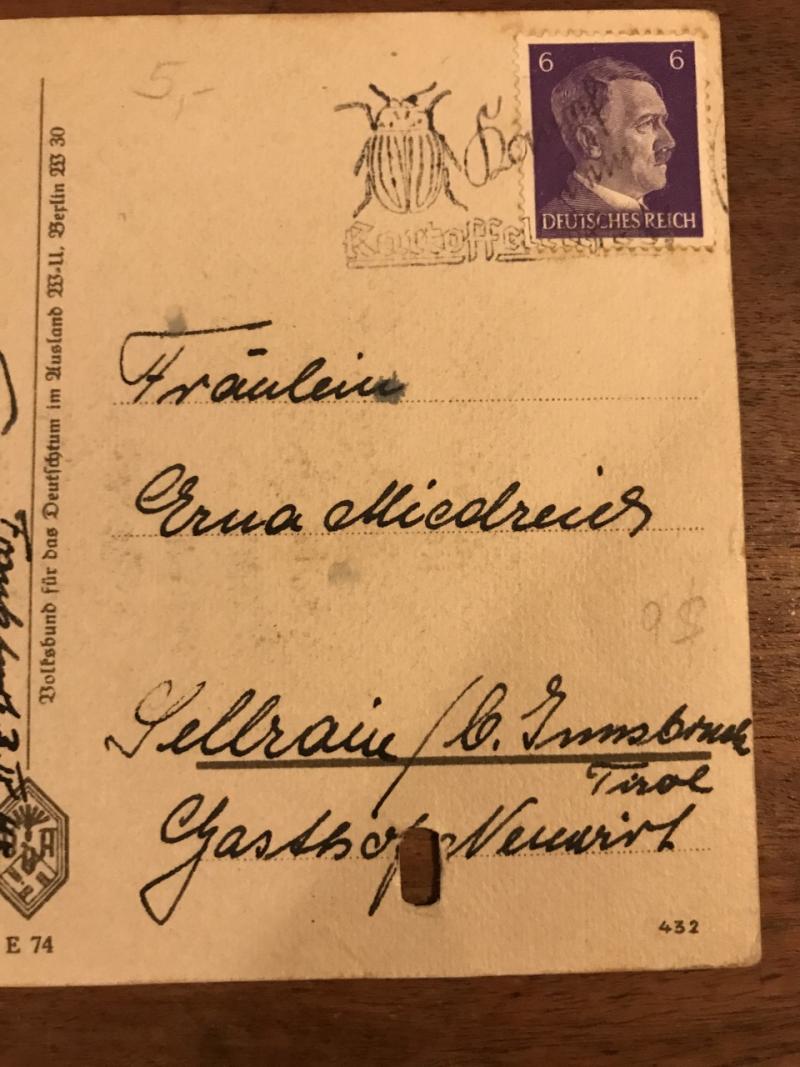 5,-
6 6
DEUTSCHES REICH
Volksbund für das Deutschtum im Ausland W-U. Berlin W 30
Fräulein
Erna Miedreich
9 $
Sellrain / b. Innsbruck
Tirol
Gasthof Neuwirt
E 74
432